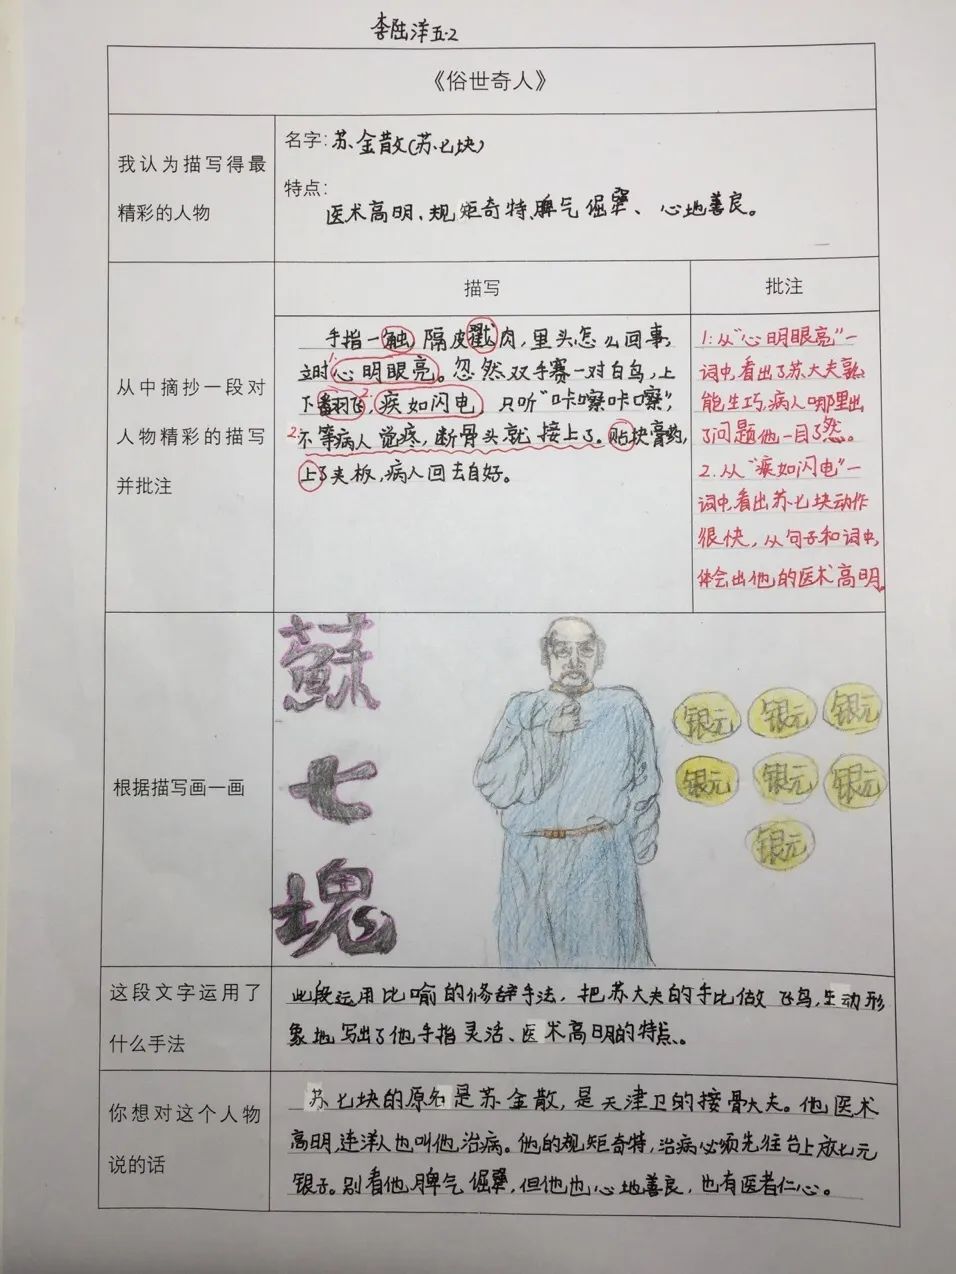 李陆洋五.2
《俗世奇人》
我认为描写得最
精彩的人物
名字:苏金散(苏七块)
特点:
医术高明、规矩奇特、脾气倔犟、心地善良。
从中摘抄一段对
人物精彩的描写
并批注
描写
批注
手指一触,隔皮戳肉,里头怎么回事,
立时心明眼亮。忽然双手赛一对白鸟,上
下翻飞,疾如闪电,只听“咔嚓咔嚓”,
不等病人觉疼,断骨头就接上了。贴块膏药,
上了夹板,病人回去自好。
1:从“心明眼亮”一
词中,看出了苏大夫熟
能生巧,病人哪里出
了问题他一目了然。
2.从“疾如闪电”一
词中,看出苏七块动作
很快,从句子和词中,
体会出他的医术高明。
根据描写画一画
蘇
七
塊
银元 银元 银元
银元 银元 银元
银元
这段文字运用了
什么手法
此段运用比喻的修辞手法,把苏大夫的手比做飞鸟,生动形
象地写出了他手指灵活、医术高明的特点。
你想对这个人物
说的话
苏七块的原名是苏金散,是天津卫的接骨大夫。他医术
高明,连洋人也叫他治病。他的规矩奇特,治病必须先往台上放七元
银子。别看他脾气倔犟,但他也心地善良,也有医者仁心。